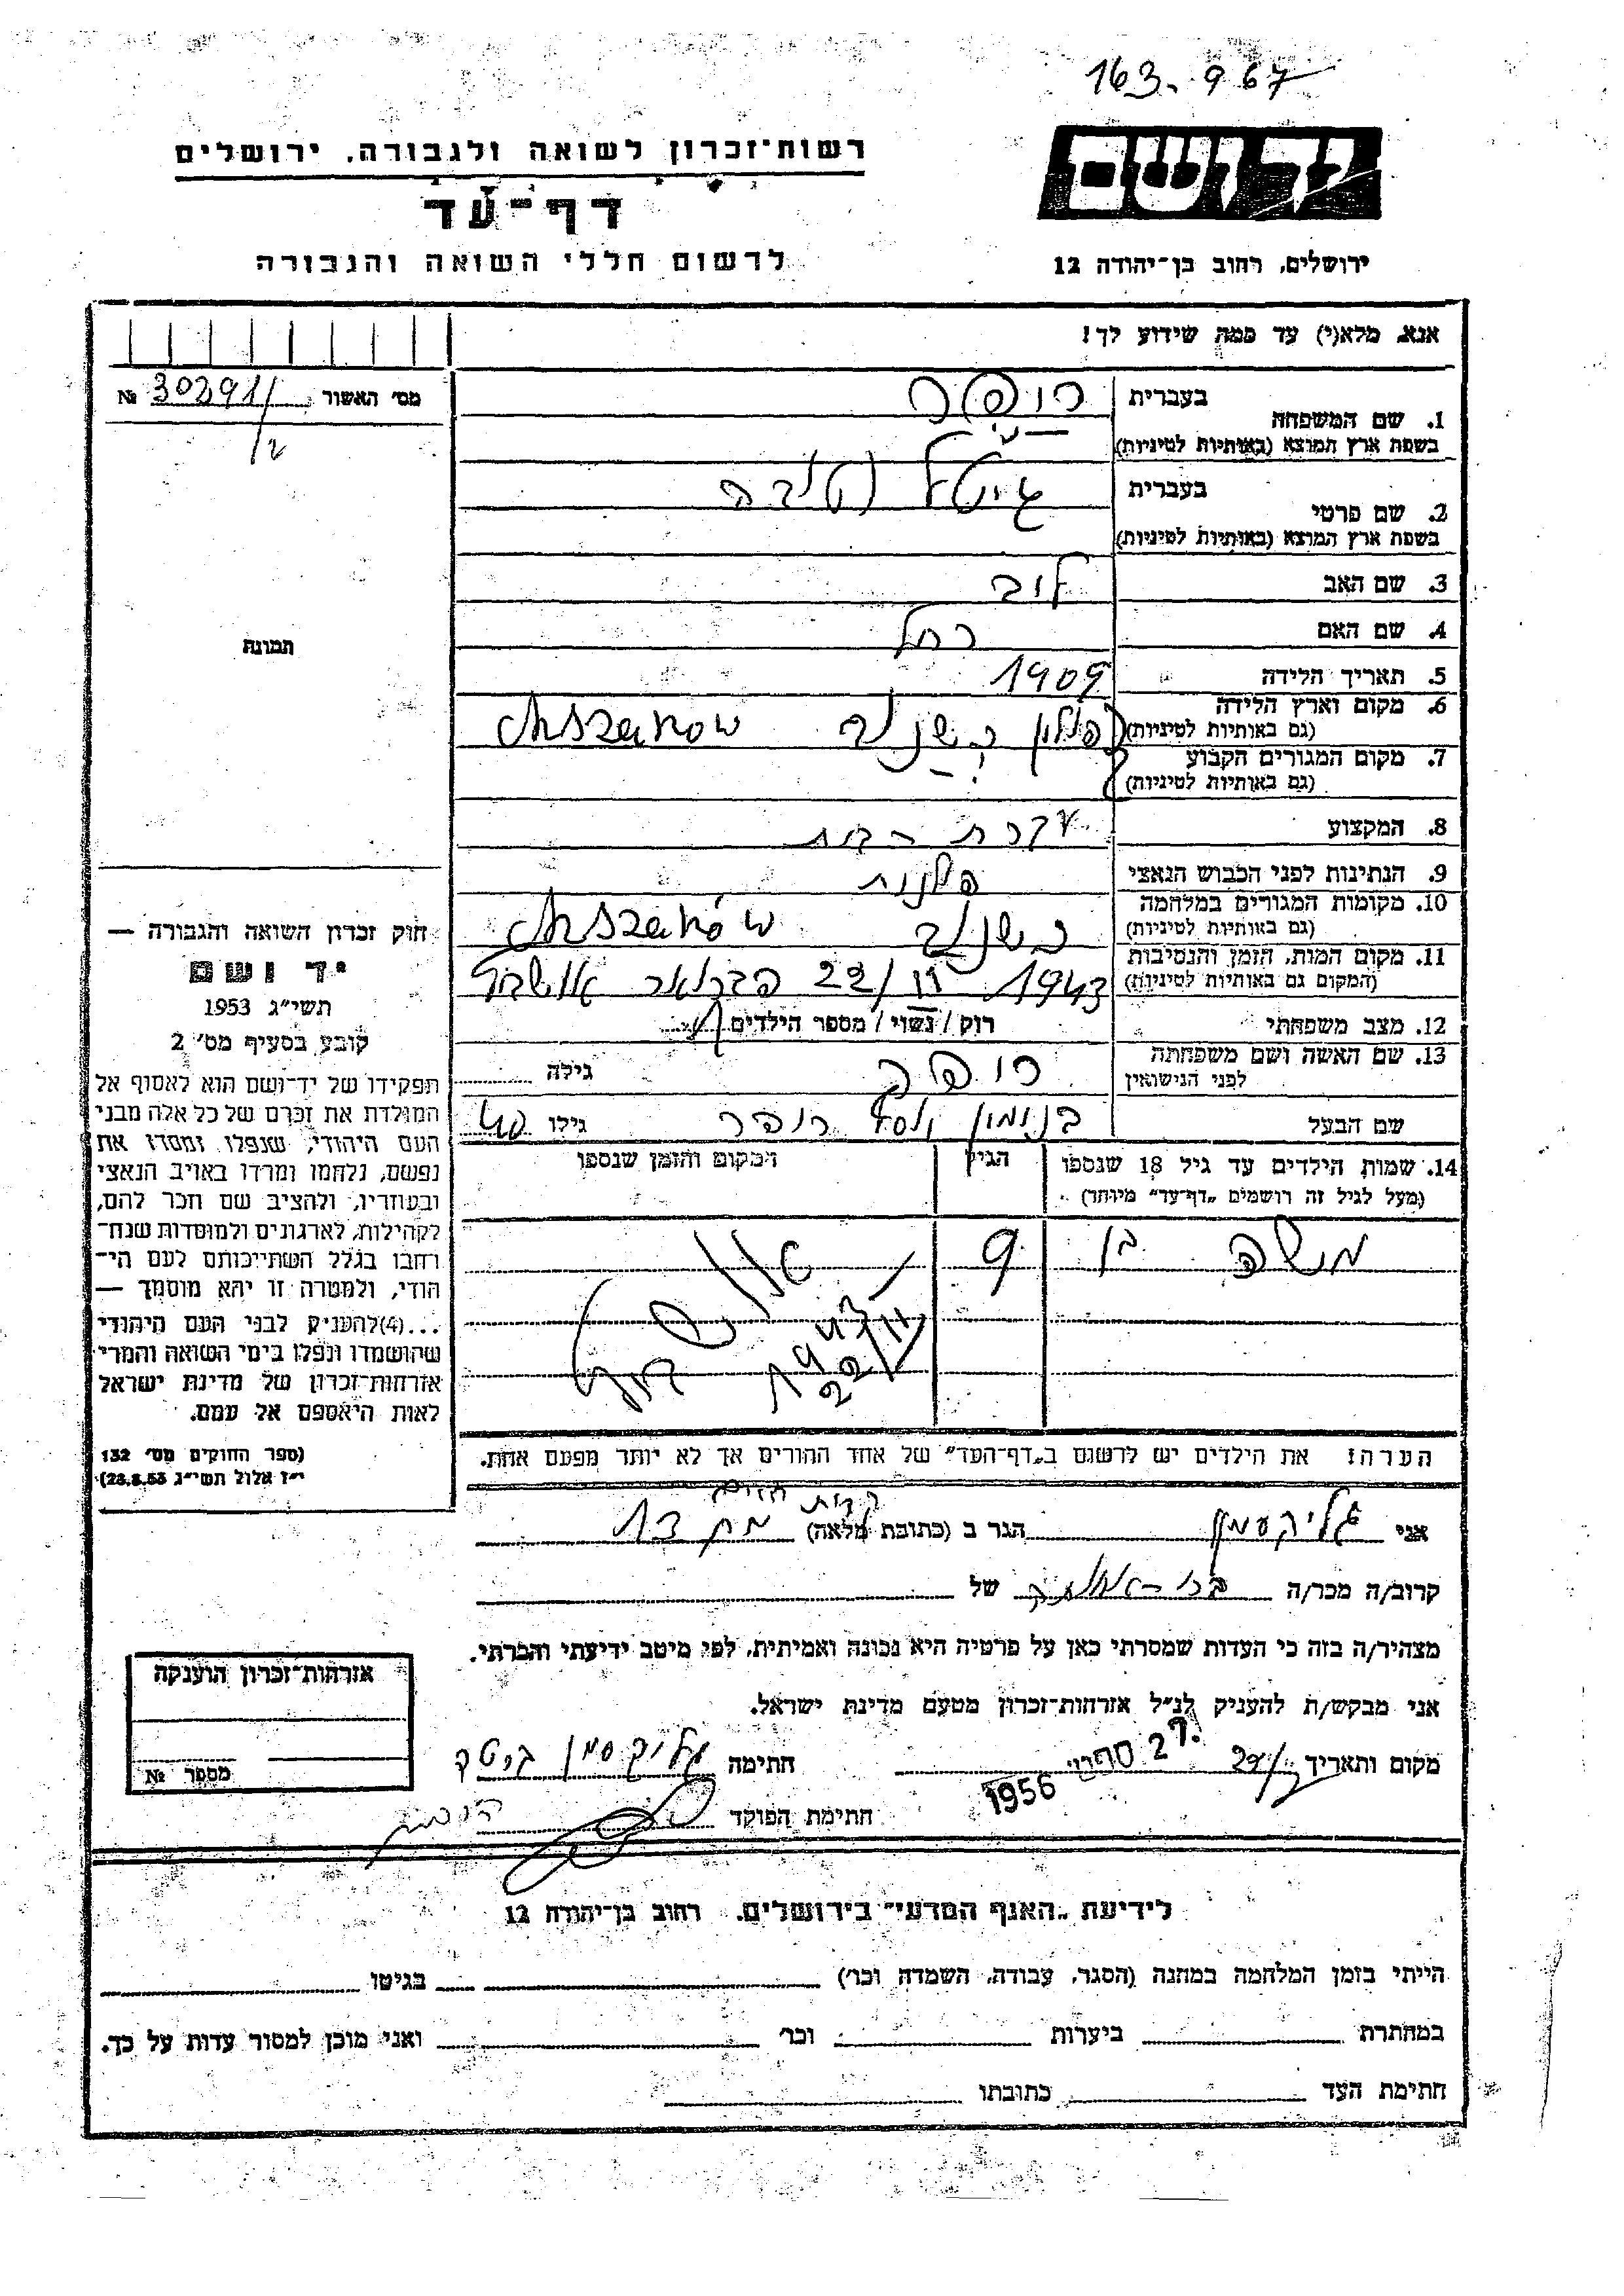 163.967
רשות־זכרון לשואה ולגבורה, ירושלים
יד ושם
דף־עד
לרשום חללי השואה והגבורה
ירושלים, רחוב בן־יהודה 12
אנא, מלא(י) עד כמה שידוע לך!
מס׳ האשור 30291/ №
1. שם המשפחה
בעברית רופר
בשפת ארץ המוצא (באותיות לטיניות)
2. שם פרטי
בעברית גיטל
בשפת ארץ המוצא (באותיות לטיניות)
3. שם האב לוב
4. שם האם רחל
תמונה
5. תאריך הלידה 1909
6. מקום וארץ הלידה פולין כשנוב Chszanow
(גם באותיות לטיניות)
7. מקום המגורים הקבוע
(גם באותיות לטיניות)
8. המקצוע עקרת בית
9. הנתינות לפני הכבוש הנאצי פולנית
10. מקומות המגורים במלחמה כשנוב Chszanów
(גם באותיות לטיניות)
11. מקום המות, הזמן והנסיבות 1943 22/II פברואר
(המקום גם באותיות לטיניות)
12. מצב משפחתי רוק / נשוי / מספר הילדים
13. שם האשה ושם משפחתה
לפני הנישואין רופר גילה
שם הבעל בנימין רופר גילו 40
14. שמות הילדים עד גיל 18 שנספו הגיל המקום והזמן שנספו
(מעל לגיל זה רושמים „דף־עד״ מיוחד)
משה בן 9
1943
22/II
הערה! את הילדים יש לרשום ב„דף־העד״ של אחד ההורים אך לא יותר מפעם אחת.
חוק זכרון השואה והגבורה —
יד ושם
תשי״ג 1953
קובע בסעיף מס׳ 2
תפקידו של יד־ושם הוא לאסוף אל
המולדת את זכרם של כל אלה מבני
העם היהודי, שנפלו ומסרו את
נפשם, נלחמו ומרדו באויב הנאצי
ובעוזריו, ולהציב שם וזכר להם,
לקהילות, לארגונים ולמוסדות שנח־
רחבו בגלל השתייכותם לעם הי־
הודי, ולמטרה זו יהא מוסמך —
...(4) להעניק לבני העם היהודי
שהושמדו ונפלו בימי השואה והמרי
אזרחות־זכרון של מדינת ישראל
לאות היאספם אל עמם.
(ספר החוקים מס׳ 132
י״ז אלול תשי״ג 28.8.53)
אני גליקסמן הגר ב (כתובת מלאה)
קרוב/ה מכר/ה של
מצהיר/ה בזה כי העדות שמסרתי כאן על פרטיה היא נכונה ואמיתית, לפי מיטב ידיעתי והכרתי.
אני מבקש/ת להעניק לנ״ל אזרחות־זכרון מטעם מדינת ישראל.
מקום ותאריך 1956 חתימה גליקסמן
חתימת הפוקד
אזרחות־זכרון הוענקה
מספר №
לידיעת „האגף המדעי״ בירושלים, רחוב בן־יהודה 12
הייתי בזמן המלחמה במחנה (הסגר, עבודה, השמדה וכו׳) בגיטו
במחתרת ביערות וכו׳ ואני מוכן למסור עדות על כך.
חתימת העד כתובתו